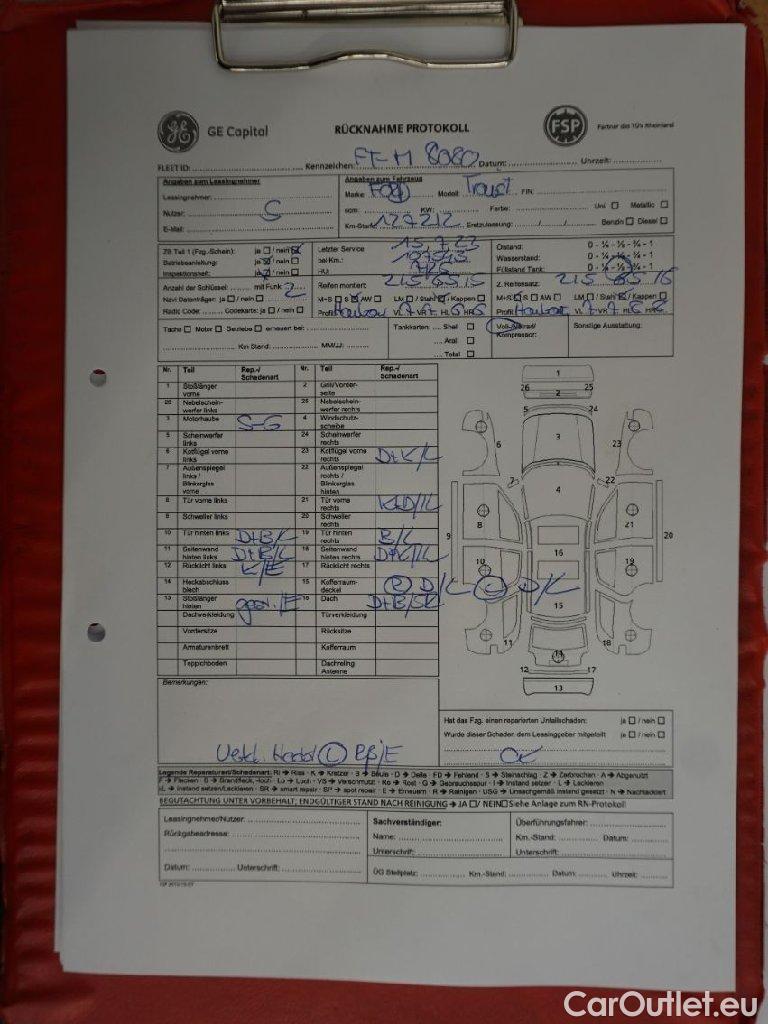 GE Capital RÜCKNAHME PROTOKOLL FSP Partner des TÜV Rheinland
FLEET ID: Kennzeichen: FT-M 8080 Datum: Uhrzeit:
Angaben zum Leasingnehmer Angaben zum Fahrzeug
Leasingnehmer: Marke Ford Modell: FIN:
Nutzer: S ccm: KW: Farbe: Uni Metallic
E-Mail: Km-Stand: 127212 Erstzulassung: / / Benzin Diesel
ZB Teil 1 (Fzg.-Schein): ja / nein Letzter Service 15.7.23 Ölstand: 0 - ¼ - ½ - ¾ - 1
Betriebsanleitung: ja / nein bei Km.: Wasserstand: 0 - ¼ - ½ - ¾ - 1
Inspektionsheft: ja / nein HU: Füllstand Tank: 0 - ¼ - ½ - ¾ - 1
Anzahl der Schlüssel: mit Funk 2 Reifen montiert: 215 65 15 2. Reifensatz: 215 65 15
Navi Datenträger: ja / nein M+S S AW LM / Stahl / Kappen M+S S AW LM / Stahl / Kappen
Radio Code: Codekarte: ja / nein Profil VL 7 VR 7 HL 6 HR 6 Profil VL 7 VR 7 HL 6 HR 6
Tacho Motor Getriebe erneuert bei: Tankkarten: Shell Kompressor: Sonstige Ausstattung:
Km Stand: MM/JJ: Aral
Total
Nr. Teil Rep.-/ Schadenart Nr. Teil Rep.-/ Schadenart
1 Stoßfänger vorne 2 Grill/Vorderseite
25 Nebelscheinwerfer links 26 Nebelscheinwerfer rechts
3 Motorhaube S-G 4 Windschutzscheibe
5 Scheinwerfer links 24 Scheinwerfer rechts
6 Kotflügel vorne links 23 Kotflügel vorne rechts D+K/L
7 Außenspiegel links / Blinkerglas vorne 22 Außenspiegel rechts / Blinkerglas hinten
8 Tür vorne links 21 Tür vorne rechts K+D/L
9 Schweller links 20 Schweller rechts
10 Tür hinten links D+B/L 19 Tür hinten rechts B/L
11 Seitenwand hinten links D+B/L 18 Seitenwand hinten rechts D+K/L
12 Rücklicht links K/E 17 Rücklicht rechts
14 Heckabschlussblech 15 Kofferraumdeckel R D/L L D/L
13 Stoßfänger hinten 16 Dach D+B/SR
Dachverkleidung Türverkleidung
Vordersitze Rücksitze
Armaturenbrett Kofferraum
Teppichboden Dachreling Antenne
1
26 25
2
5 24
6 3 23
7 22
4
8 21
9 20
16
10 19
15
11 18
14
12 17
13
Bemerkungen:
Hat das Fzg. einen reparierten Unfallschaden: ja / nein
Wurde dieser Schaden dem Leasinggeber mitgeteilt ja / nein
Legende Reparaturen/Schadenart: RI → Riss · K → Kratzer · B → Beule · D → Delle · FD → Fehlend · S → Steinschlag · Z → Zerbrochen · A → Abgenutzt
F → Flecken · B → Brandfleck,-loch · Lo → Loch · VS → Verschmutzt · Ko → Rost · G → Gebrauchsspur · I → Instand setzen · L → Lackieren
IL → Instand setzen/Lackieren · SR → smart repair · SP → spot repair · E → Erneuern · R → Reinigen · USG → Unsachgemäß instand gesetzt · N → Nachlackiert
BEGUTACHTUNG UNTER VORBEHALT; ENDGÜLTIGER STAND NACH REINIGUNG → JA / NEIN Siehe Anlage zum RN-Protokoll
Leasingnehmer/Nutzer: Sachverständiger: Überführungsfahrer:
Rückgabeadresse: Name: Km.-Stand: Datum:
Unterschrift: Unterschrift:
Datum: Unterschrift: ÜG Stellplatz: Km.-Stand: Datum: Uhrzeit:
CarOutlet.eu